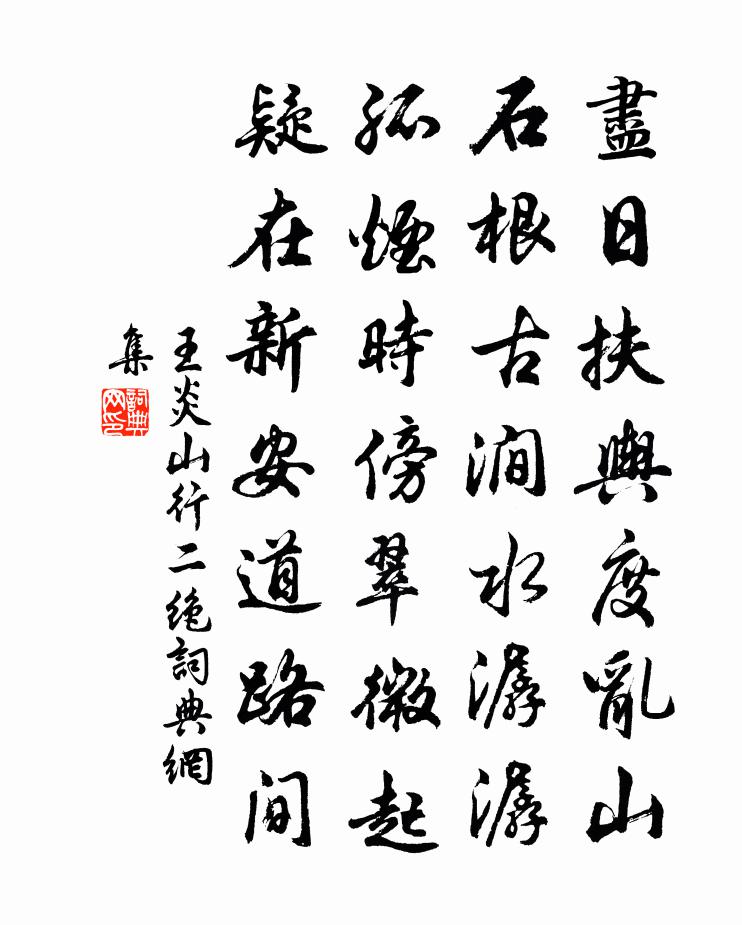 盡日扶輿度亂山
石根古澗水潺潺
孤煙時傍翠微起
疑在新安道路間
王炎山行二絶詞典網
集
詞典網印